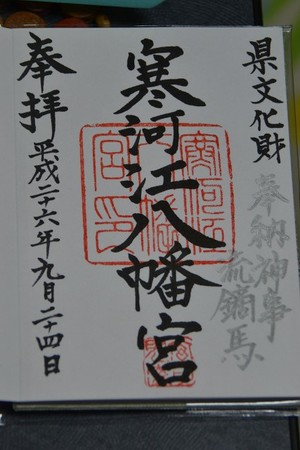 県文化財
奉納神事
流鏑馬
寒河江八幡宮
奉拝
平成二十六年九月二十四日
寒河江
八幡
宮印